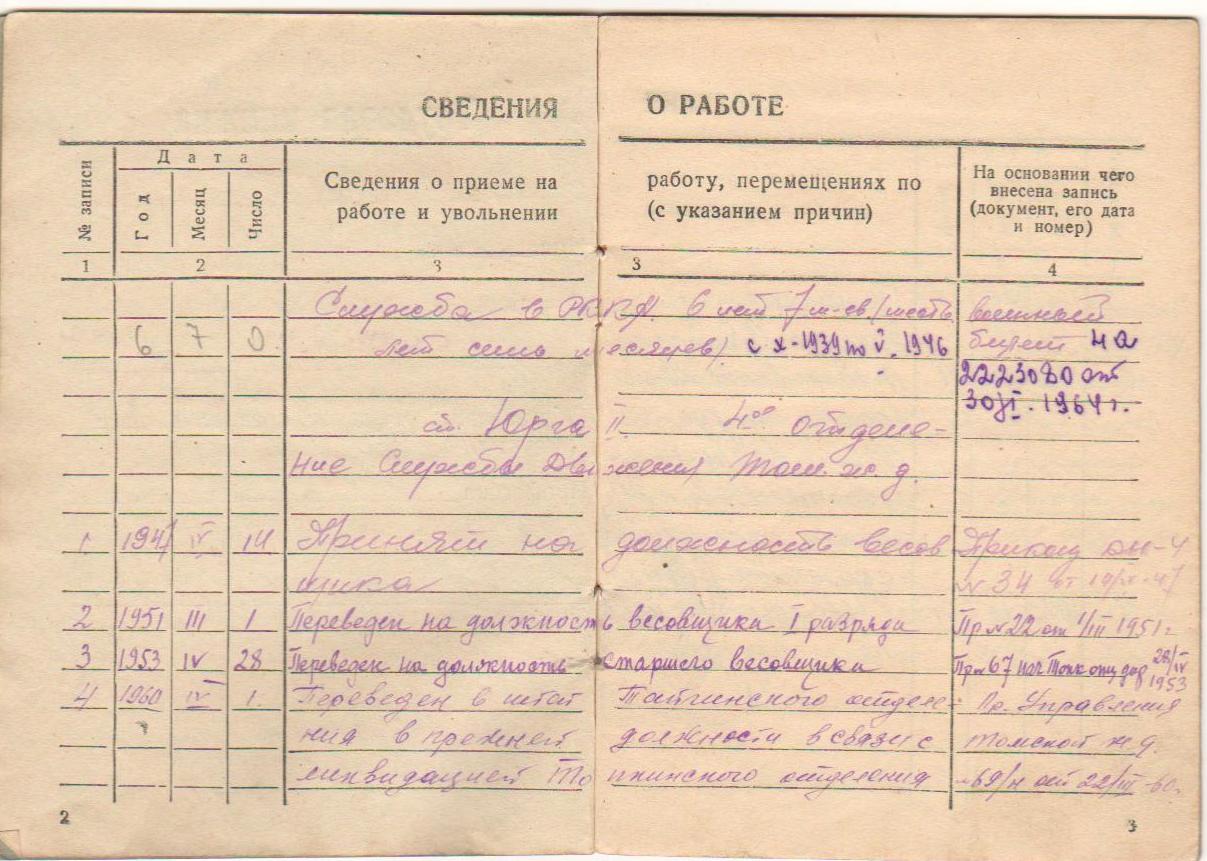 СВЕДЕНИЯ О РАБОТЕ
№ записи
Дата
Год
Месяц
Число
Сведения о приеме на работу, перемещениях по
работе и увольнении (с указанием причин)
На основании чего
внесена запись
(документ, его дата
и номер)
1 2 3 3 4
Служба в РККА. 6 лет 7 м-ев (шесть военный
6 7 0 лет семь месяцев) с X-1939 по V. 1946 билет НА
2223080 от
30/VI. 1964 г.
ст. Юрга II. 4ое отделе-
ние Службы Движения Том. ж. д.
1. 1947 IV 14 Принят на должность весов Приказ
щика № 34 от
2 1951 III 1 Переведен на должность весовщика I разряда Пр № 22 от 1/III 1951 г
3 1953 IV 28 Переведен на должность старшего весовщика Пр № 67 28/IV
1953
4 1960 IV 1. Переведен в штат Тайгинского отделе- Пр. Управления
ния в прежней должности в связи с Томской ж.д.
ликвидацией То пкинского отделения 69/н от 22/III-60г.
2 3